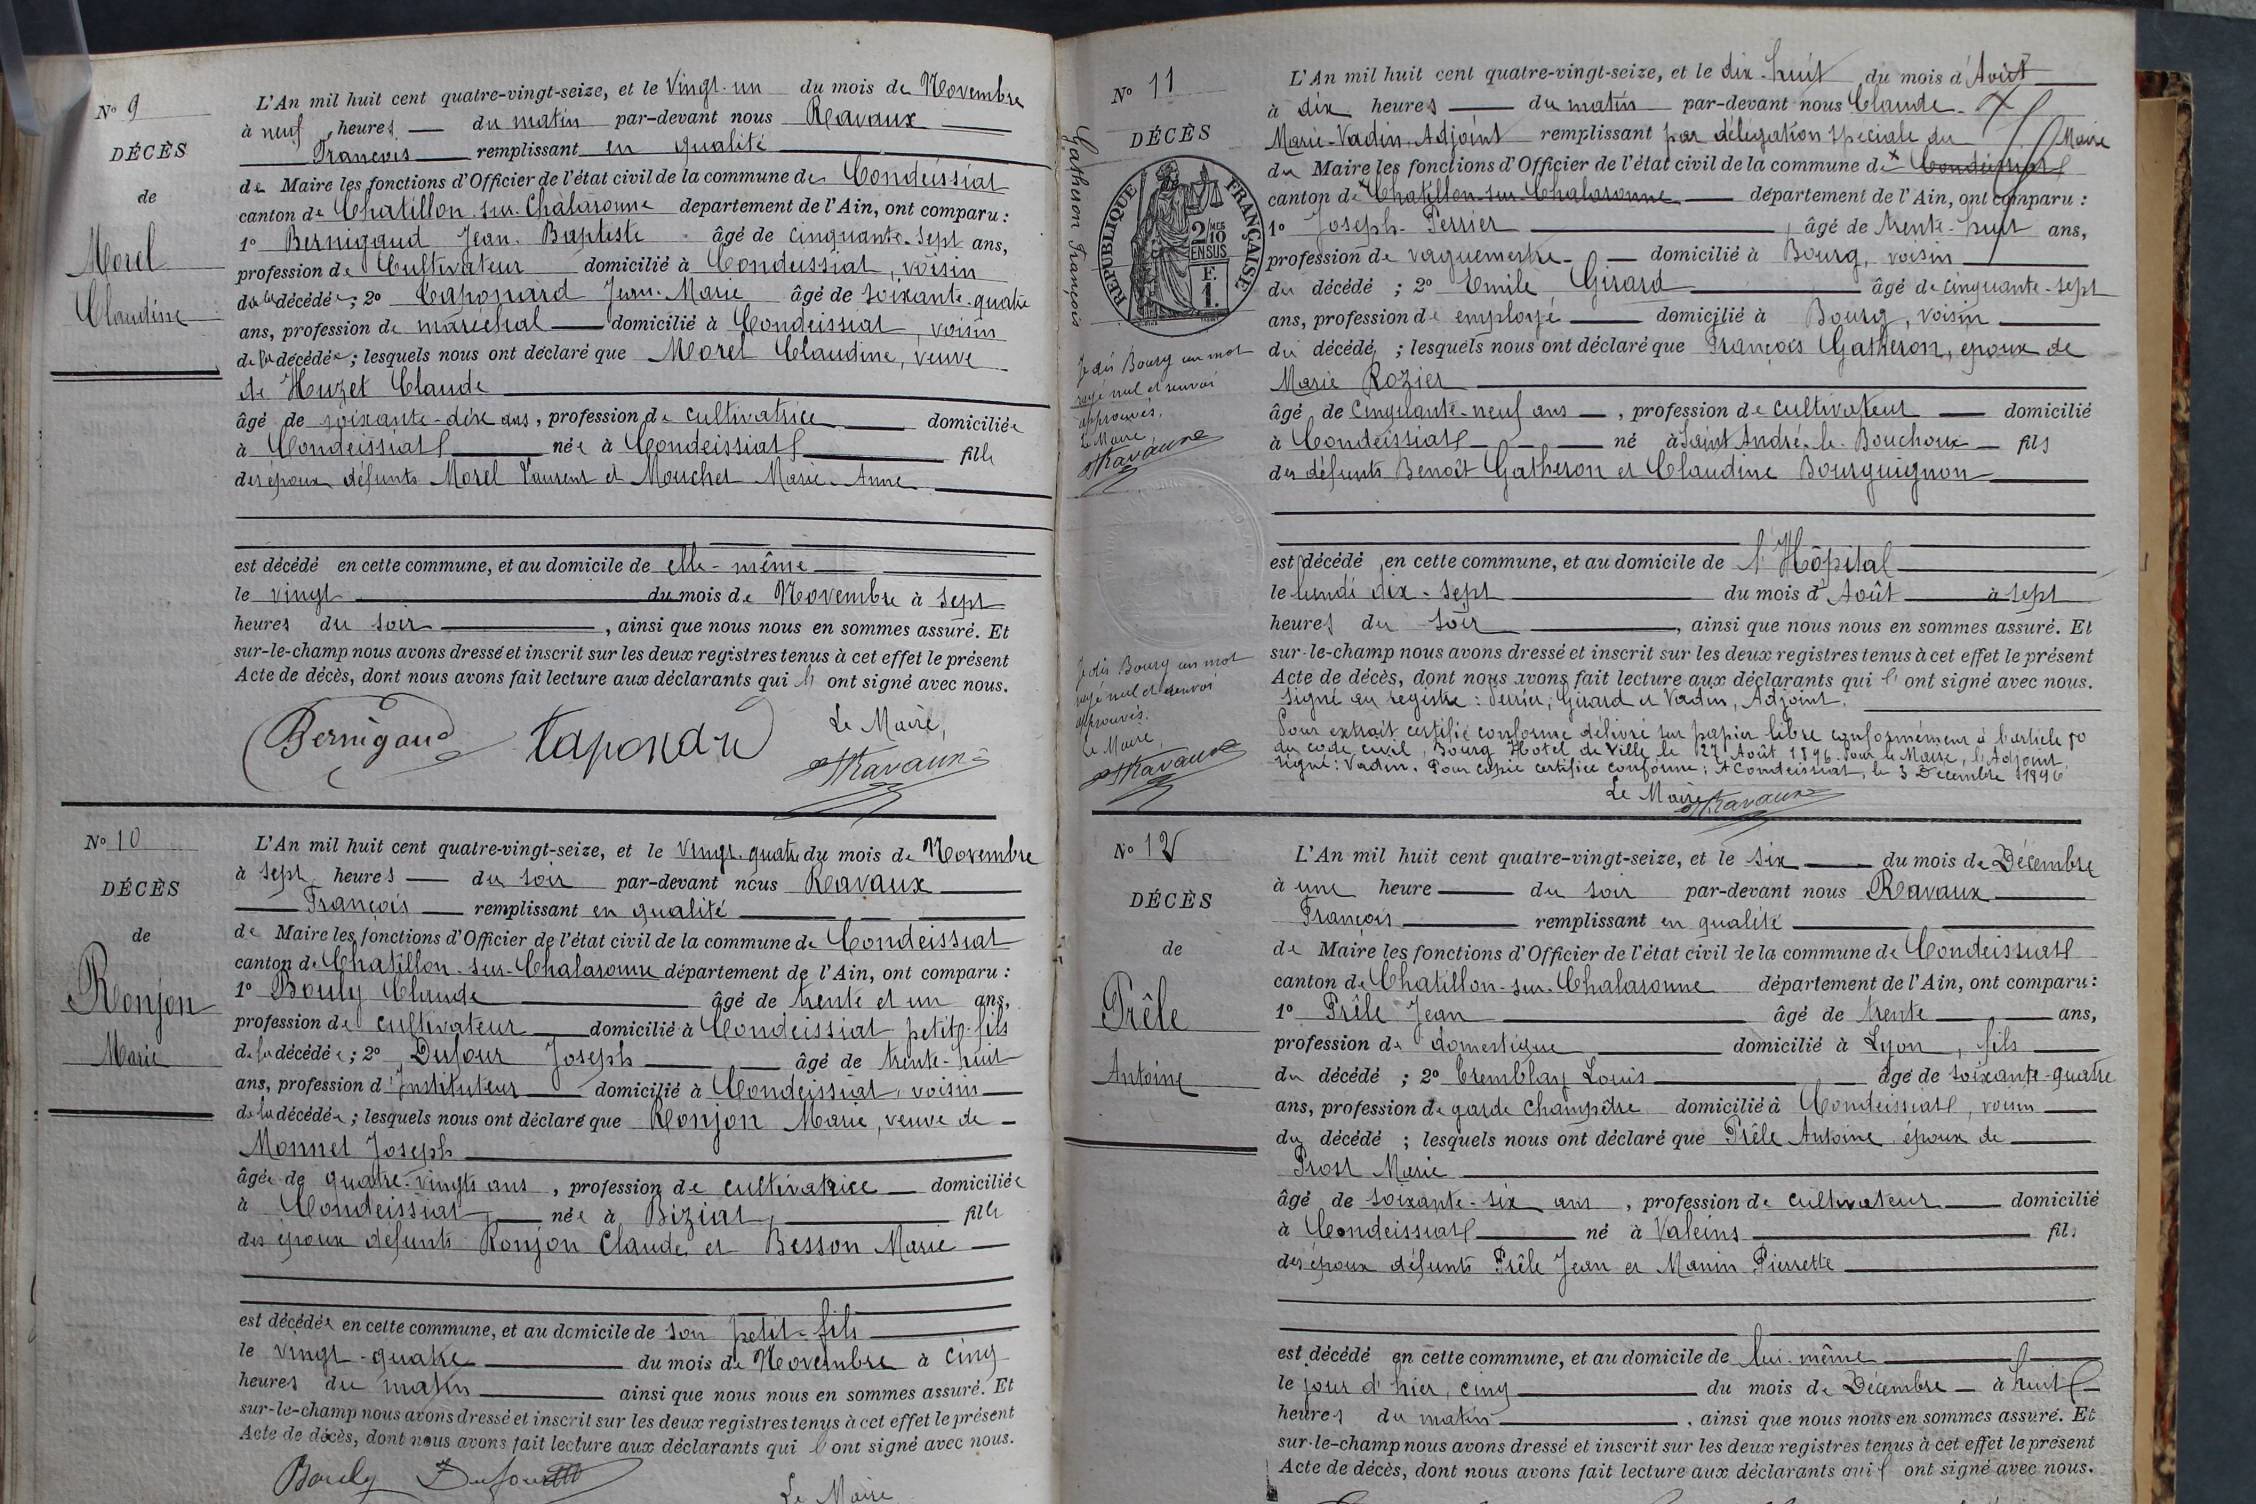 N° 9
DÉCÈS
de
Morel
Claudine
L'An mil huit cent quatre-vingt-seize, et le Vingt-un du mois de Novembre
à neuf heures du matin par-devant nous Ravaux
François remplissant en qualité
de Maire les fonctions d'Officier de l'état civil de la commune de Condeissiat
canton de Chatillon-sur-Chalaronne département de l'Ain, ont comparu :
1° Bernigaud Jean-Baptiste âgé de cinquante-sept ans,
profession de Cultivateur domicilié à Condeissiat, voisin
de la décédée ; 2° Taponard Jean-Marie âgé de soixante-quatre
ans, profession de maréchal domicilié à Condeissiat, voisin
de la décédée ; lesquels nous ont déclaré que Morel Claudine, veuve
de Huzet Claude
âgé de soixante-dix ans, profession de cultivatrice domiciliée
à Condeissiat née à Condeissiat fille
des époux défunts Morel Laurent et Mouchet Marie-Anne
est décédé en cette commune, et au domicile de elle-même
le vingt du mois de Novembre à sept
heures du soir, ainsi que nous nous en sommes assuré. Et
sur-le-champ nous avons dressé et inscrit sur les deux registres tenus à cet effet le présent
Acte de décès, dont nous avons fait lecture aux déclarants qui ont signé avec nous.
Bernigaud
Le Maire,
Ravaux
N° 10
DÉCÈS
de
Ronjon
Marie
L'An mil huit cent quatre-vingt-seize, et le Vingt-quatre du mois de Novembre
à sept heures du soir par-devant nous Ravaux
François remplissant en qualité
de Maire les fonctions d'Officier de l'état civil de la commune de Condeissiat
canton de Chatillon-sur-Chalaronne département de l'Ain, ont comparu :
1° Bouly Claude âgé de trente et un ans,
profession de cultivateur domicilié à Condeissiat petit-fils
de la décédée ; 2° Dufour Joseph âgé de trente-huit
ans, profession d'Instituteur domicilié à Condeissiat, voisin
de la décédée ; lesquels nous ont déclaré que Ronjon Marie, veuve de
Monnet Joseph
âgée de quatre-vingts ans, profession de cultivatrice domiciliée
à Condeissiat, née à Biziat, fille
des époux défunts Ronjon Claude et Besson Marie
est décédée en cette commune, et au domicile de son petit-fils
le vingt-quatre du mois de Novembre à cinq
heures du matin ainsi que nous nous en sommes assuré. Et
sur-le-champ nous avons dressé et inscrit sur les deux registres tenus à cet effet le présent
Acte de décès, dont nous avons fait lecture aux déclarants qui ont signé avec nous.
Bouly Dufour
Le Maire
N° 11
DÉCÈS
Gatheron François
RÉPUBLIQUE FRANÇAISE
2/10 EN SUS
F. 1.
Je dis Bourg un mot
rayé nul et renvoi
approuvés.
Le Maire
Ravaux
Je dis Bourg un mot
rayé nul et renvoi
approuvés.
Le Maire,
Ravaux
L'An mil huit cent quatre-vingt-seize, et le dix-huit du mois d'Août
à dix heures du matin par-devant nous Claude-
Marie-Vadin, Adjoint remplissant par délégation spéciale du Maire
du Maire les fonctions d'Officier de l'état civil de la commune de Condeissiat
canton de Chatillon-sur-Chalaronne département de l'Ain, ont comparu :
1° Joseph-Perrier âgé de trente-huit ans,
profession de vaguemestre domicilié à Bourg, voisin
du décédé ; 2° Emile Girard âgé de cinquante-sept
ans, profession de employé domicilié à Bourg, voisin
du décédé ; lesquels nous ont déclaré que François Gatheron, époux de
Marie Rozier
âgé de cinquante-neuf ans, profession de cultivateur domicilié
à Condeissiat né à Saint André-le-Bouchoux fils
des défunts Benoît Gatheron et Claudine Bourguignon
est décédé en cette commune, et au domicile de l'Hôpital
le lundi dix-sept du mois d'Août à sept
heures du soir, ainsi que nous nous en sommes assuré. Et
sur-le-champ nous avons dressé et inscrit sur les deux registres tenus à cet effet le présent
Acte de décès, dont nous avons fait lecture aux déclarants qui ont signé avec nous.
Signé au registre : Perrier, Girard et Vadin, Adjoint.
Pour extrait certifié conforme délivré sur papier libre conformément à l'article 80
du code civil, Bourg Hotel de Ville le 27 Août 1896. Pour le Maire, l'Adjoint
signé : Vadin. Pour copie certifiée conforme : A Condeissiat, le 3 Décembre 1896
Le Maire Ravaux
N° 12
DÉCÈS
de
Prêle
Antoine
L'An mil huit cent quatre-vingt-seize, et le six du mois de Décembre
à une heure du soir par-devant nous Ravaux
François remplissant en qualité
de Maire les fonctions d'Officier de l'état civil de la commune de Condeissiat
canton de Chatillon-sur-Chalaronne département de l'Ain, ont comparu :
1° Prêle Jean âgé de trente ans,
profession de domestique domicilié à Lyon, fils
du décédé ; 2° Tremblay Louis âgé de soixante-quatre
ans, profession de garde champêtre domicilié à Condeissiat, voisin
du décédé ; lesquels nous ont déclaré que Prêle Antoine époux de
Prost Marie
âgé de soixante-six ans, profession de cultivateur domicilié
à Condeissiat né à Valeins fils
des époux défunts Prêle Jean et Manin Pierrette
est décédé en cette commune, et au domicile de lui-même
le jour d'hier, cinq du mois de Décembre à huit
heures du matin, ainsi que nous nous en sommes assuré. Et
sur-le-champ nous avons dressé et inscrit sur les deux registres tenus à cet effet le présent
Acte de décès, dont nous avons fait lecture aux déclarants qui ont signé avec nous.